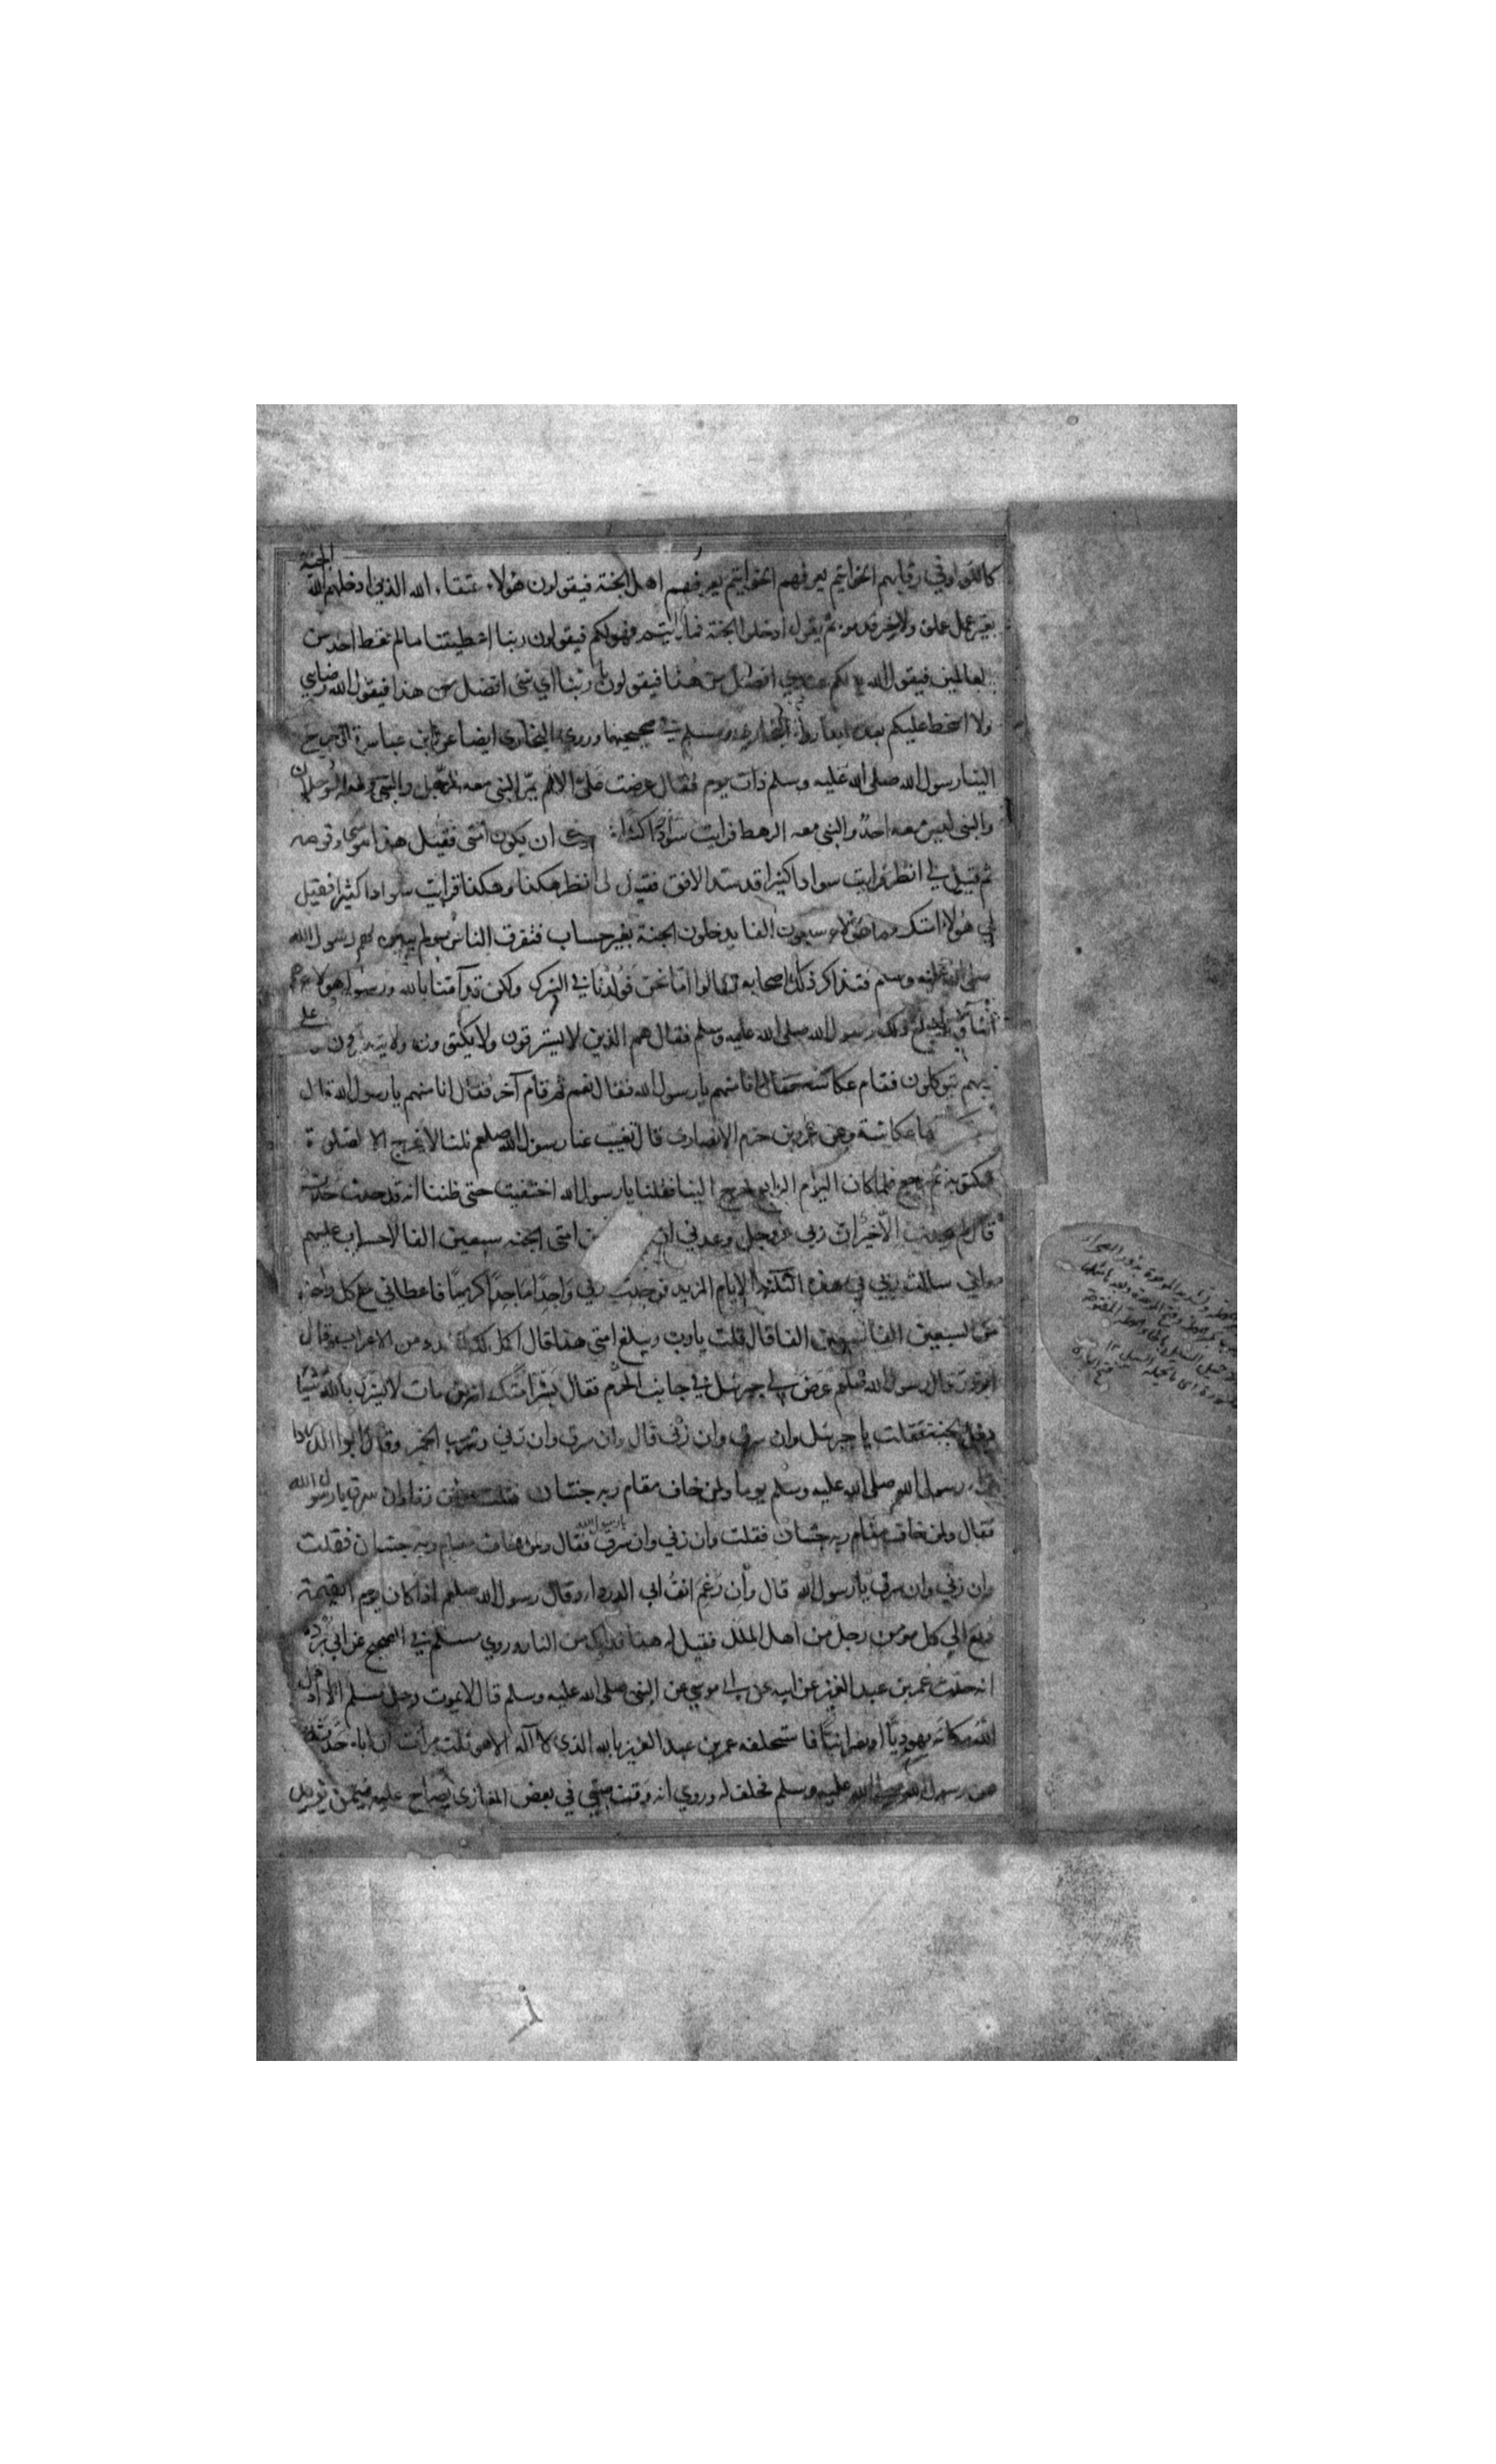 كاللؤلؤ في رقابهم الخواتيم يعرفهم الخواتيم يعرفهم اهل الجنة فيقولون هؤلاء عتقاء الله الذين ادخلهم الله الجنة
بغير عمل عملوه ولا خير قدموه ثم يقول ادخلوا الجنة فما رايتموه فهو لكم فيقولون ربنا اعطيتنا ما لم تعط احد من
العالمين فيقول الله لكم عندي افضل من هذا فيقولون يا ربنا اي شئ افضل من هذا فيقول الله رضاي
ولا اسخط عليكم بعده ابدا رواه البخاري ومسلم في صحيحيهما وروى البخاري ايضا عن ابن عباس قال خرج
الينا رسول الله صلى الله عليه وسلم ذات يوم فقال عرضت على الامم يمر النبي معه الرجل والنبي معه الرجلان
والنبي ليس معه احد والنبي معه الرهط فرايت سوادا كثيرا ان يكون امتي فقيل هذا موسى وقومه
ثم قيل لي انظر فرايت سوادا كثيرا قد سد الافق فقيل لي انظر هكذا وهكذا فرايت سوادا كثيرا فقيل
لي هؤلاء امتك ومع هؤلاء سبعون الفا يدخلون الجنة بغير حساب فتفرق الناس ولم يبين لهم رسول الله
صلى الله عليه وسلم فتذاكر ذلك اصحابه فقالوا اما نحن فولدنا في الشرك ولكن قد آمنا بالله ورسوله هؤلاء هم
ابناؤنا فبلغ ذلك رسول الله صلى الله عليه وسلم فقال هم الذين لا يسترقون ولا يكتوون ولا يتطيرون وعلى
ربهم يتوكلون فقام عكاشة فقال انا منهم يا رسول الله فقال نعم ثم قام آخر فقال انا منهم يا رسول الله قال
بها عكاشة وعن عمرو بن حزم الانصاري قال تغيب عنا رسول الله صلعم ثلثا لا يخرج الا لصلوة
مكتوبة ثم يرجع فلما كان اليوم الرابع خرج الينا فقلنا يا رسول الله احتبست حتى ظننا انه قد حدث حدث
قال لم يحدث الا خير ان ربي عز وجل وعدني ان من امتي الجنة سبعين الفا لا حساب عليهم
واني سالت ربي في هذه الثلثة الايام المزيد فوجدت ربي واجدا ماجدا كريما فاعطاني مع كل واحد
من السبعين الفا سبعين الفا قال قلت يا رب ويبلغ امتي هذا قال اكمل لك العدد من الاعراب وقال
ابو ذر قال رسول الله صلعم عرض لي جبرئيل في جانب الحرة فقال بشر امتك انه من مات لا يشرك بالله شيئا
دخل الجنة فقلت يا جبرئيل وان سرق وان زنى قال وان سرق وان زنى وشرب الخمر وقال ابو الدرداء
رسول الله صلى الله عليه وسلم يوما ولمن خاف مقام ربه جنتان فقلت وان زنا وان سرق يا رسول الله
فقال ولمن خاف مقام ربه جنتان فقلت وان زنى وان سرق يا رسول الله فقال ولمن خاف مقام ربه جنتان فقلت
وان زنى وان سرق يا رسول الله قال وان رغم انف ابي الدرداء وقال رسول الله صلعم اذا كان يوم القيمة
دفع الى كل مؤمن رجل من اهل الملل فقيل له هذا فداك من النار وروي مسلم في الصحيح عن ابي بردة
انه حدث عمر بن عبد العزيز عن ابيه عن ابي موسى عن النبي صلى الله عليه وسلم قال لا يموت رجل مسلم الا ادخل
الله مكانه يهوديا او نصرانيا فاستحلفه عمر بن عبد العزيز بالله الذي لا اله الا هو ثلث مرات ان اباه حدثه
عن رسول الله صلى الله عليه وسلم فحلف له وروي انه وقف صبي في بعض المغازي